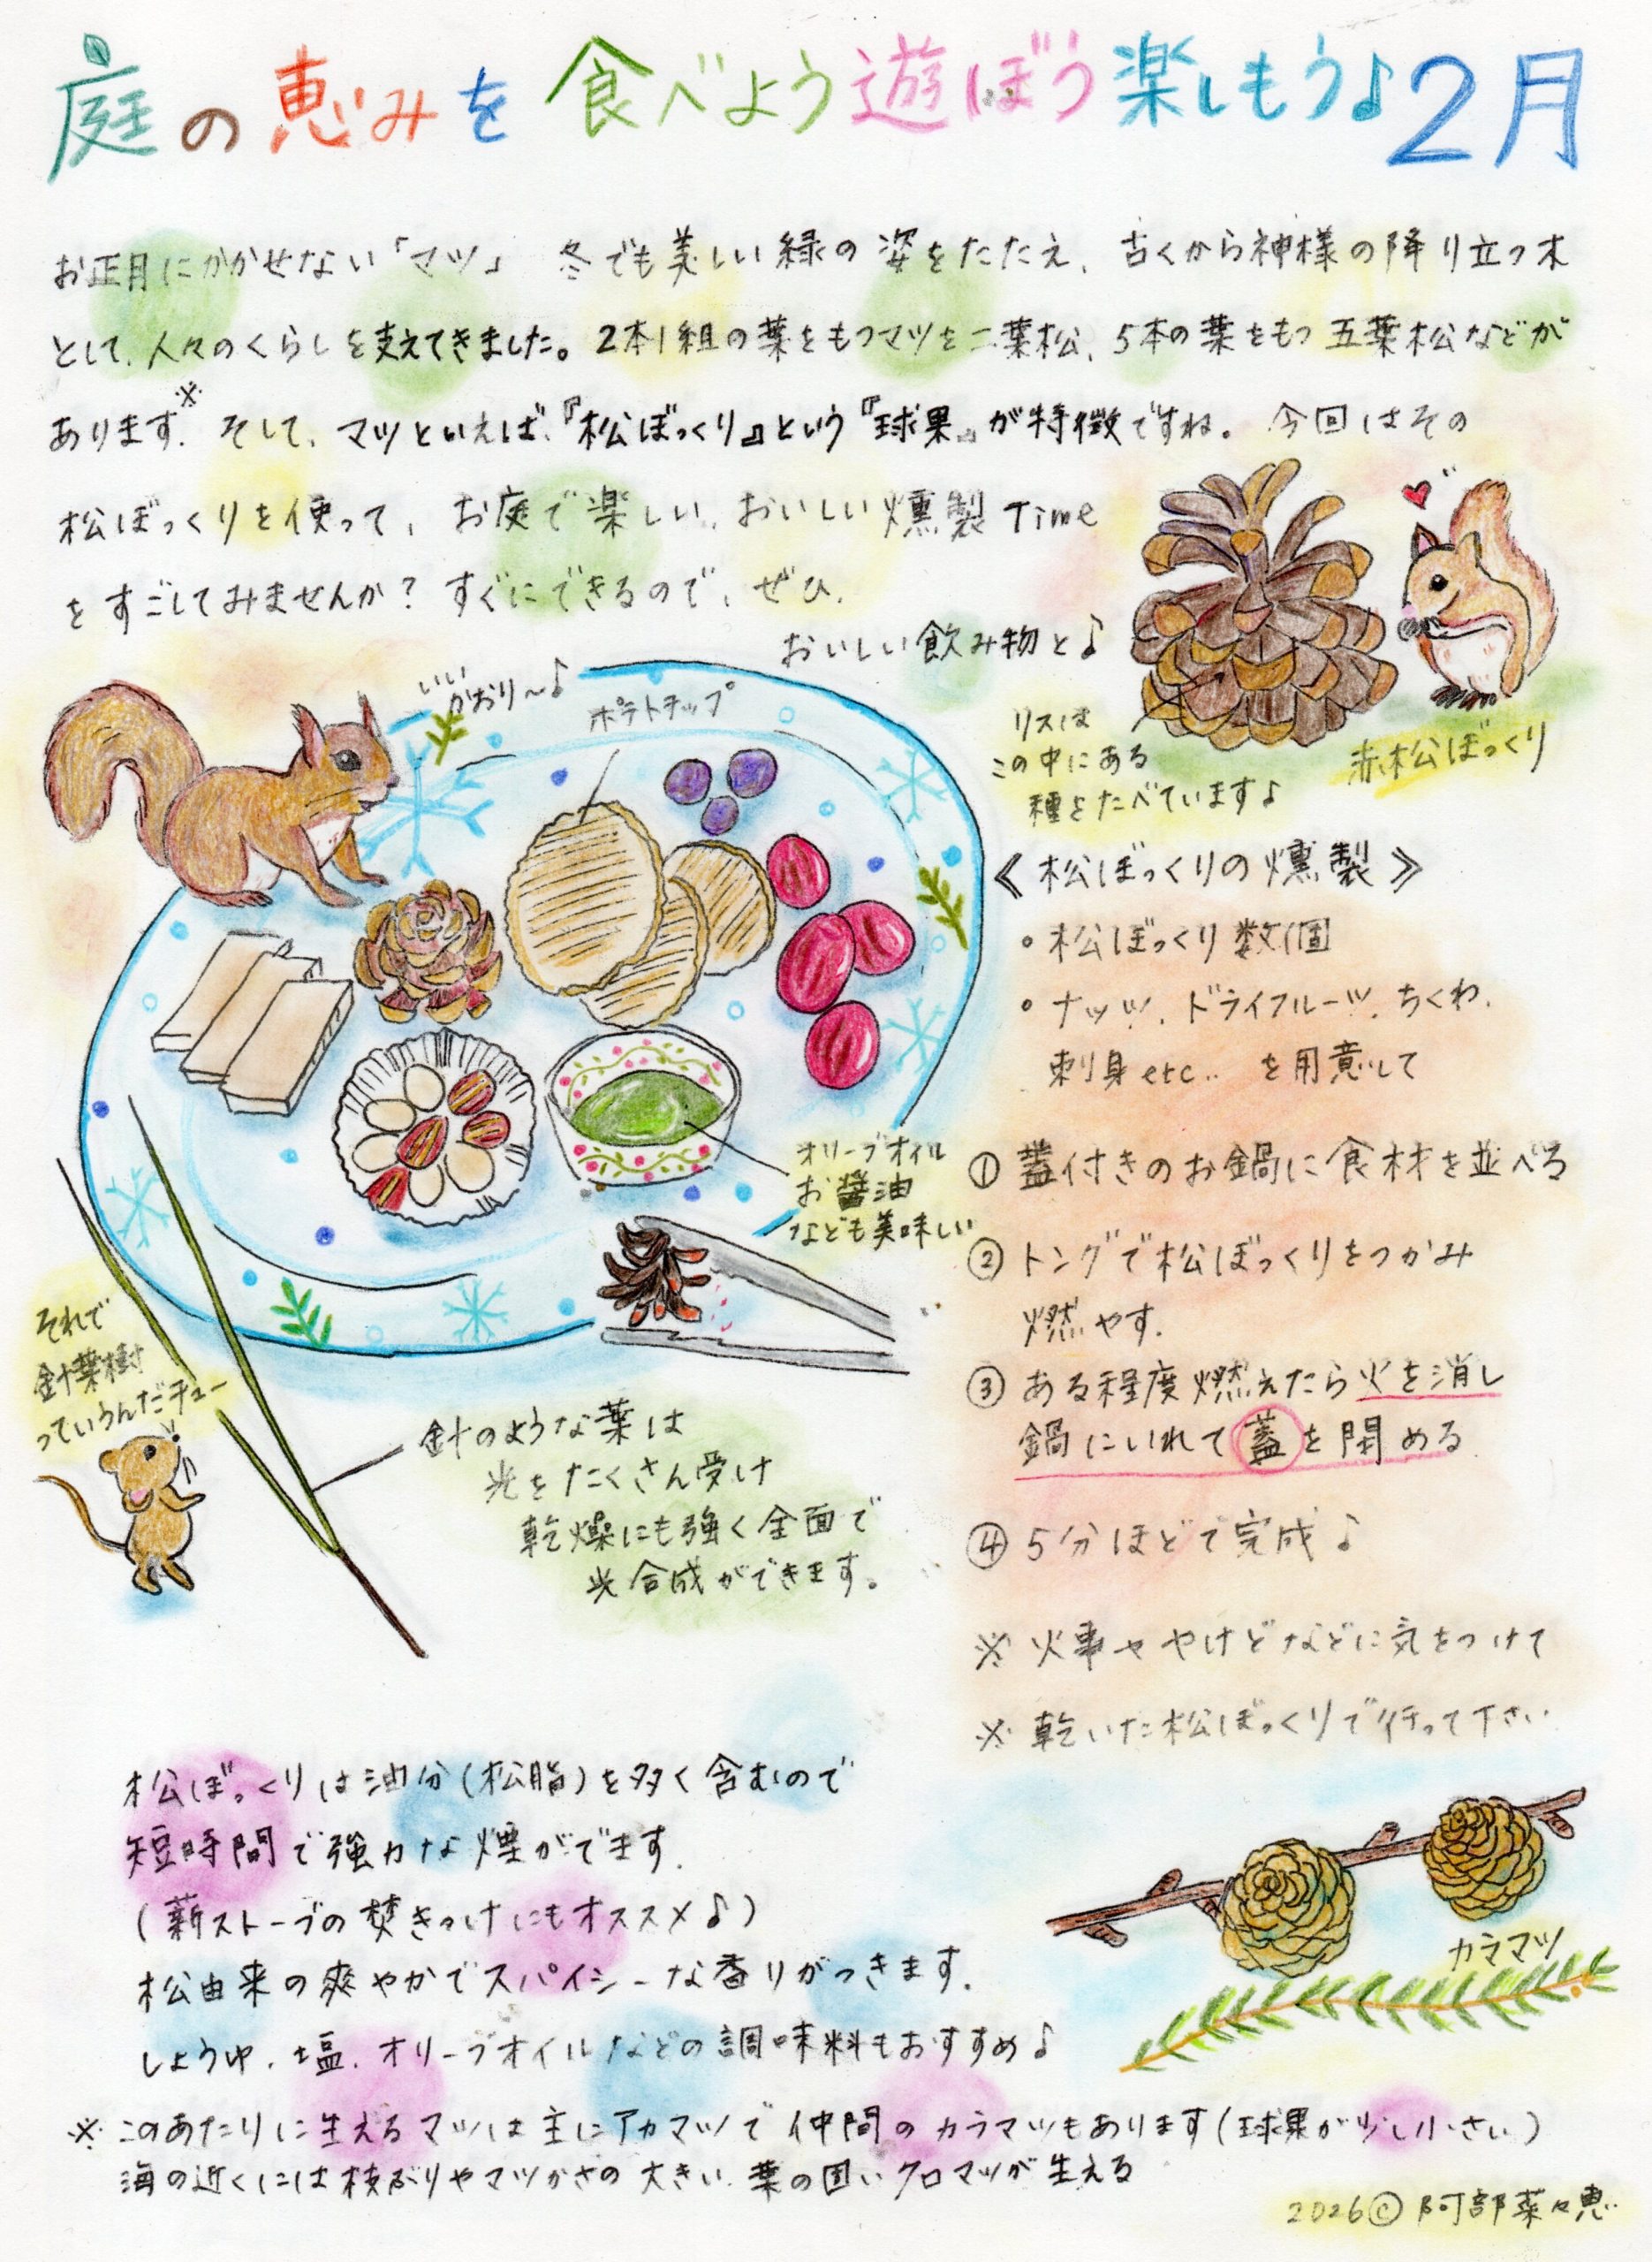 庭の恵みを食べよう遊ぼう楽しもう♪2月
お正月にかかせない「マツ」 冬でも美しい緑の姿をたたえ、古くから神様の降り立つ木
として、人々のくらしを支えてきました。2本1組の葉をもつマツを二葉松、5本の葉をもつ五葉松などが
あります※。そして、マツといえば、『松ぼっくり』という『球果』が特徴ですね。今回はその
松ぼっくりを使って、お庭で楽しい、おいしい燻製Time
をすごしてみませんか?すぐにできるので、ぜひ、
おいしい飲み物と♪
リスは
この中にある
種をたべています♪
赤松ぼっくり
いい
かおり〜♪
ポテトチップ
オリーブオイル
お醤油
なども美味しい
≪松ぼっくりの燻製≫
・松ぼっくり数個
・ナッツ、ドライフルーツ、ちくわ、
刺身etc.. を用意して
①蓋付きのお鍋に食材を並べる
②トングで松ぼっくりをつかみ
燃やす.
③ある程度燃えたら火を消し
鍋にいれて蓋を閉める
④5分ほどで完成♪
※火事ややけどなどに気をつけて
※乾いた松ぼっくりで行って下さい
それで
針葉樹
っていうんだチュー
針のような葉は
光をたくさん受け
乾燥にも強く全面で
光合成ができます。
松ぼっくりは油分(松脂)を多く含むので
短時間で強力な煙がでます.
(薪ストーブの焚きつけにもオススメ♪)
松由来の爽やかでスパイシーな香りがつきます.
しょうゆ、塩、オリーブオイルなどの調味料もおすすめ♪
カラマツ
※このあたりに生えるマツは主にアカマツで仲間のカラマツもあります(球果が少し小さい)
海の近くには枝ぶりやマツかさの大きい、葉の固いクロマツが生える
2026©阿部菜々恵